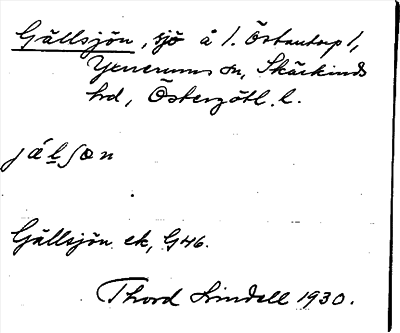 Gällsjön, sjö å 1. Östantorp 1,
Yxnerums sn, Skärkinds
hrd, Östergötl. l.
jälʃøn
Gällsjön ek, G46.
Thord Lindell 1930.